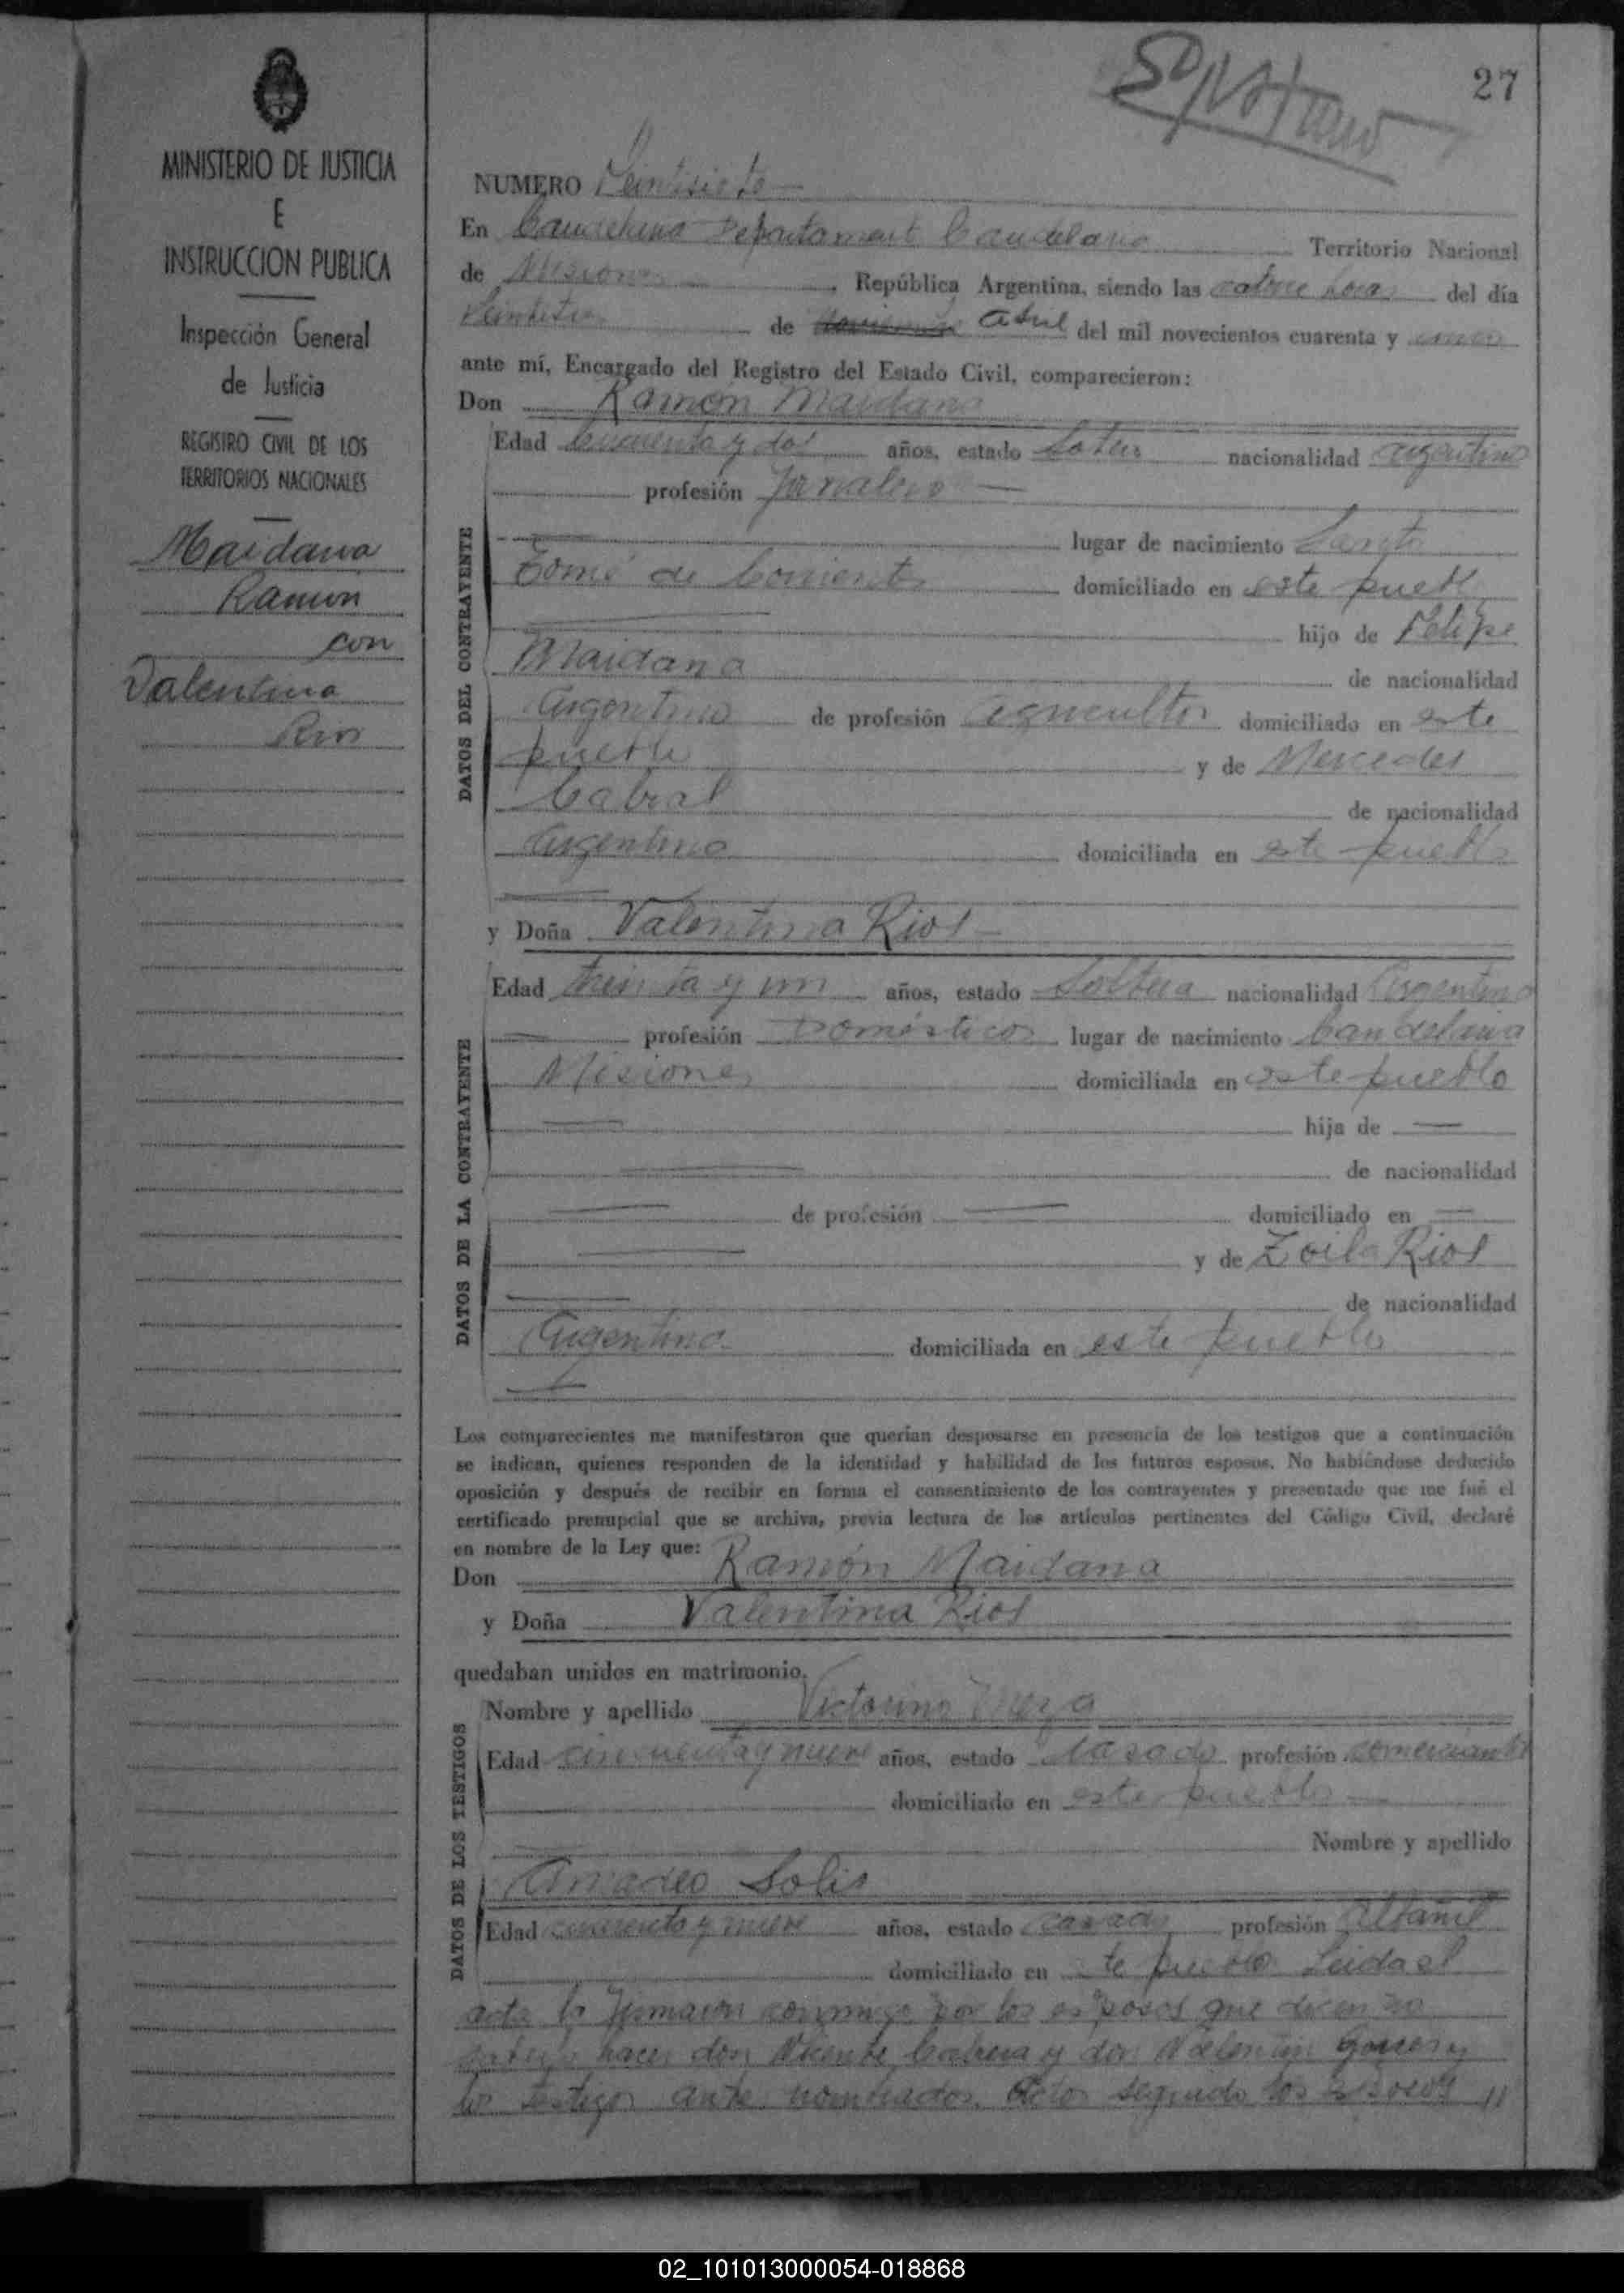 27
MINISTERIO DE JUSTICIA
E
INSTRUCCION PUBLICA
Inspección General
de Justicia
REGISTRO CIVIL DE LOS
TERRITORIOS NACIONALES
Maidana
Ramon
con
Valentina
Rios
NUMERO Veintisiete
En Candelaria Departament Candelaria Territorio Nacional
de Misiones, República Argentina, siendo las catorce horas del día
de abril del mil novecientos cuarenta y cinco
ante mí, Encargado del Registro del Estado Civil, comparecieron:
Don Ramón Maidana
DATOS DEL CONTRAYENTE
Edad y dos años, estado nacionalidad argentino
profesión Jornalero
lugar de nacimiento Santo
Tomé de Corrientes domiciliado en este pueblo
hijo de Felipe
Maidana de nacionalidad
Argentino de profesión agricultor domiciliado en este
pueblo y de Mercedes
Cabral de nacionalidad
Argentina domiciliada en este pueblo
y Doña Valentina Rios
DATOS DE LA CONTRAYENTE
Edad treinta y un años, estado Soltera nacionalidad Argentina
profesión Domésticos lugar de nacimiento Candelaria
Misiones domiciliada en este pueblo
hija de
de nacionalidad
de profesión domiciliado en
y de Zoila Rios
de nacionalidad
Argentina domiciliada en este pueblo
Los comparecientes me manifestaron que querían desposarse en presencia de los testigos que a continuación
se indican, quienes responden de la identidad y habilidad de los futuros esposos. No habiéndose deducido
oposición y después de recibir en forma el consentimiento de los contrayentes y presentado que me fué el
certificado prenupcial que se archiva, previa lectura de los artículos pertinentes del Código Civil, declaré
en nombre de la Ley que:
Don Ramón Maidana
y Doña Valentina Rios
quedaban unidos en matrimonio.
DATOS DE LOS TESTIGOS
Nombre y apellido Victorino Meza
Edad cincuenta y nueve años, estado Casado profesión comerciante
domiciliado en este pueblo
Nombre y apellido
Amadeo Solis
Edad y nueve años, estado casado profesión Albañil
domiciliado en te pueblo Leida el
acta la firmaron conmigo por los esposos que dicen no
hacer don Vicente Cabrera y don Valentín Gomez y
los testigos ante nombrados. Acto seguido los esposos //
02_101013000054-018868